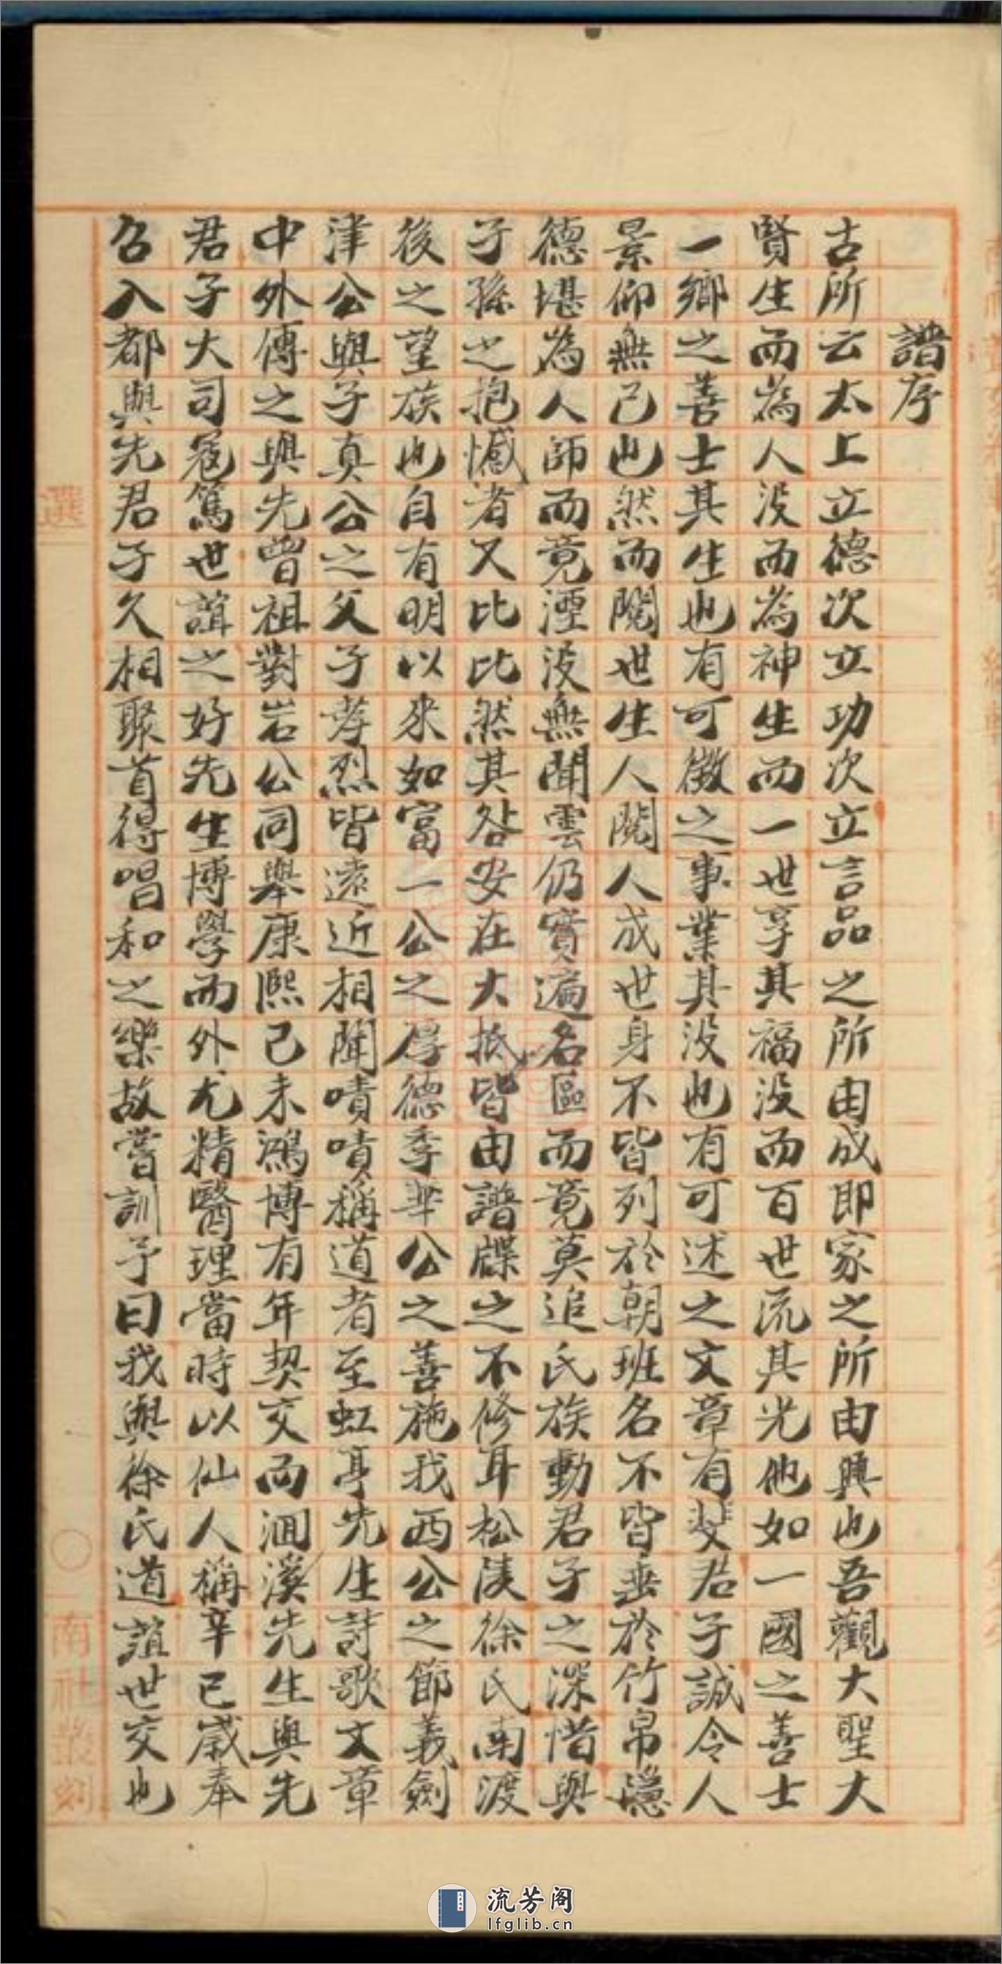 譜序
古所云太上立德次立功次立言品之所由成即家之所由興也吾觀大聖大
賢生而為人沒而為神生而一世享其福沒而百世流其光他如一國之善士
一鄉之善士其生也有可徵之事業其沒也有可述之文章有斐君子誠令人
景仰無已也然而閱世生人閱人成世身不皆列於朝班名不皆垂於竹帛隱
德堪為人師而竟湮沒無聞雲仍實遍名區而竟莫追氏族動君子之深惜與
子孫之抱憾者又比比然其咎安在大抵皆由譜牒之不修耳松陵徐氏南渡
後之望族也自有明以來如富一公之厚德季華公之善施我西公之節義劍
津公與子真公之父子孝烈皆遠近相聞嘖嘖稱道者至虹亭先生詩歌文章
中外傳之與先曾祖對岩公同舉康熙己未鴻博有年契交而洄溪先生與先
君子大司寇篤世誼之好先生博學而外尤精醫理當時以仙人稱辛巳歲奉
召入都與先君子久相聚首得唱和之樂故嘗訓予曰我與徐氏道誼世交也
選
南社叢刻
流芳阁
lfglib.cn